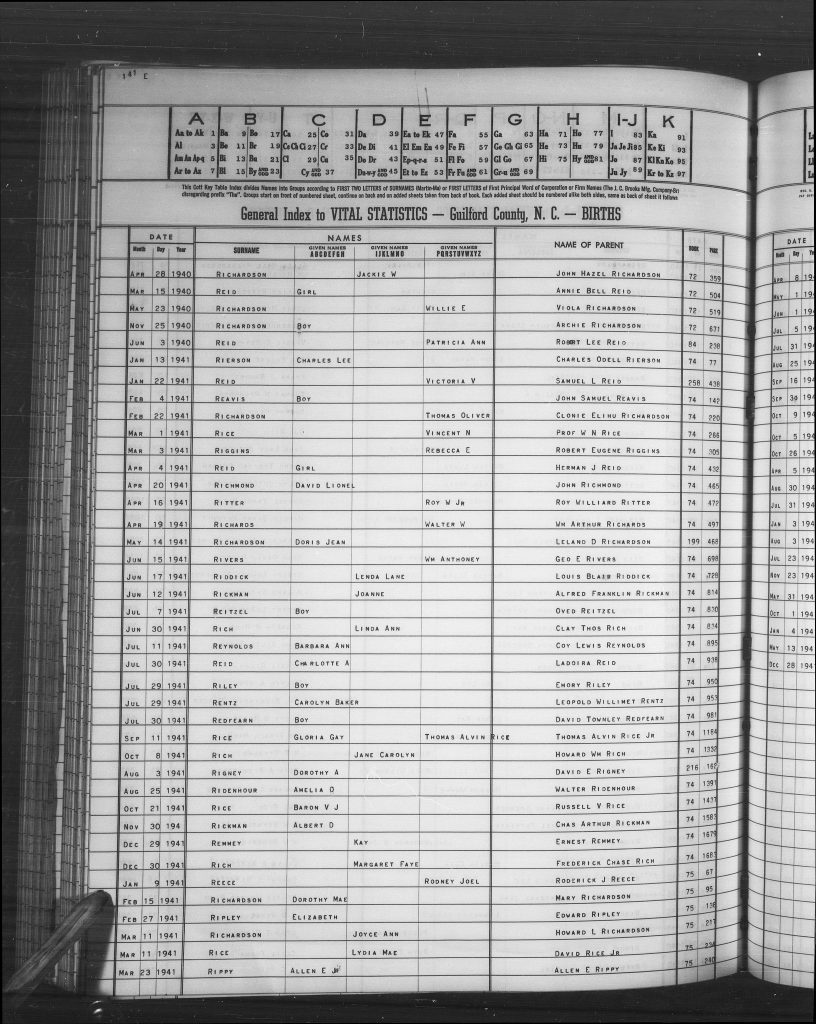 141 E
A B C D E F G H I-J K
Aa to Ak 1 Ba 9 Bo 17 Ca 25 Co 31 Da 39 Ea to Ek 47 Fa 55 Ga 63 Ha 71 Ho 77 I 83 Ka 91
Al 3 Be 11 Br 19 Ce Ch Ci 27 Cr 33 De Di 41 El Em En 49 Fe Fi 57 Ge Gh Gi 65 He 73 Hu 79 Ja Je Ji 85 Ke Ki 93
Am An Ap-q 5 Bi 13 Bu 21 Cl 29 Cu 35 Do Dr 43 Ep-q-r-s 51 Fl Fo 59 Gl Go 67 Hi 75 Hy AND GO 81 Jo 87 Kl Kn Ko 95
Ar to Az 7 Bl 15 By AND GO 23 Cy AND GO 37 Du-w-y AND GO 45 Et to Ez 53 Fr Fu AND GO 61 Gr-u AND GO 69 Ju Jy 89 Kr to Kz 97
This Cott Key Table Index divides Names into Groups according to FIRST TWO LETTERS of SURNAMES (Martin-Ma) or FIRST LETTERS of First Principal Word of Corporation or Firm Names (The J. C. Brooks Mfg. Company-Br)
disregarding prefix "The". Groups start on front of numbered sheet, continue on back and on added sheets taken from back of book. Each added sheet should be numbered alike both sides, same as back of sheet it follows
General Index to VITAL STATISTICS — Guilford County, N. C. — BIRTHS
DATE NAMES NAME OF PARENT BOOK PAGE
Month Day Year SURNAME GIVEN NAMES ABCDEFGH GIVEN NAMES IJKLMNO GIVEN NAMES PQRSTUVWXYZ
APR 28 1940 RICHARDSON JACKIE W JOHN HAZEL RICHARDSON 72 359
MAR 15 1940 REID GIRL ANNIE BELL REID 72 504
MAY 23 1940 RICHARDSON WILLIE E VIOLA RICHARDSON 72 519
NOV 25 1940 RICHARDSON BOY ARCHIE RICHARDSON 72 671
JUN 3 1940 REID PATRICIA ANN ROBERT LEE REID 84 238
JAN 13 1941 RIERSON CHARLES LEE CHARLES ODELL RIERSON 74 77
JAN 22 1941 REID VICTORIA V SAMUEL L REID 258 438
FEB 4 1941 REAVIS BOY JOHN SAMUEL REAVIS 74 142
FEB 22 1941 RICHARDSON THOMAS OLIVER CLONIE ELIHU RICHARDSON 74 220
MAR 1 1941 RICE VINCENT N PROF W N RICE 74 266
MAR 3 1941 RIGGINS REBECCA E ROBERT EUGENE RIGGINS 74 305
APR 4 1941 REID GIRL HERMAN J REID 74 432
APR 20 1941 RICHMOND DAVID LIONEL JOHN RICHMOND 74 465
APR 16 1941 RITTER ROY W JR ROY WILLIARD RITTER 74 472
APR 19 1941 RICHARDS WALTER W WM ARTHUR RICHARDS 74 497
MAY 14 1941 RICHARDSON DORIS JEAN LELAND D RICHARDSON 199 468
JUN 15 1941 RIVERS WM ANTHONEY GEO E RIVERS 74 698
JUN 17 1941 RIDDICK LENDA LANE LOUIS BLAIR RIDDICK 74 728
JUN 12 1941 RICKMAN JOANNE ALFRED FRANKLIN RICKMAN 74 814
JUL 7 1941 REITZEL BOY OVED REITZEL 74 830
JUN 30 1941 RICH LINDA ANN CLAY THOS RICH 74 834
JUL 11 1941 REYNOLDS BARBARA ANN COY LEWIS REYNOLDS 74 895
JUL 30 1941 REID CHARLOTTE A LADOIRA REID 74 938
JUL 29 1941 RILEY BOY EMORY RILEY 74 950
JUL 29 1941 RENTZ CAROLYN BAKER LEOPOLD WILLIMET RENTZ 74 953
JUL 30 1941 REDFEARN BOY DAVID TOWNLEY REDFEARN 74 981
SEP 11 1941 RICE GLORIA GAY THOMAS ALVIN RICE THOMAS ALVIN RICE JR 74 1184
OCT 8 1941 RICH JANE CAROLYN HOWARD WM RICH 74 1332
AUG 3 1941 RIGNEY DOROTHY A DAVID E RIGNEY 216 162
AUG 25 1941 RIDENHOUR AMELIA D WALTER RIDENHOUR 74 1391
OCT 21 1941 RICE BARON V J RUSSELL V RICE 74 1431
NOV 30 194 RICKMAN ALBERT D CHAS ARTHUR RICKMAN 74 1583
DEC 29 1941 REMMEY KAY ERNEST REMMEY 74 1679
DEC 30 1941 RICH MARGARET FAYE FREDERICK CHASE RICH 74 1685
JAN 9 1941 REECE RODNEY JOEL RODERICK J REECE 75 67
FEB 15 1941 RICHARDSON DOROTHY MAE MARY RICHARDSON 75 95
FEB 27 1941 RIPLEY ELIZABETH EDWARD RIPLEY 75 136
MAR 11 1941 RICHARDSON JOYCE ANN HOWARD L RICHARDSON 75 217
MAR 11 1941 RICE LYDIA MAE DAVID RICE JR 75 234
MAR 23 1941 RIPPY ALLEN E JR ALLEN E RIPPY 75 240
DATE
Month Day Year
APR 8 194
MAY 1 194
JUN 1 194
JUL 5 194
JUL 31 194
AUG 25 194
SEP 16 194
SEP 30 194
OCT 9 194
OCT 5 194
OCT 26 194
APR 5 194
AUG 30 194
JUL 31 194
JAN 3 194
AUG 3 194
JUL 23 194
NOV 23 194
MAY 31 194
OCT 1 194
JAN 4 194
MAY 13 194
DEC 28 194